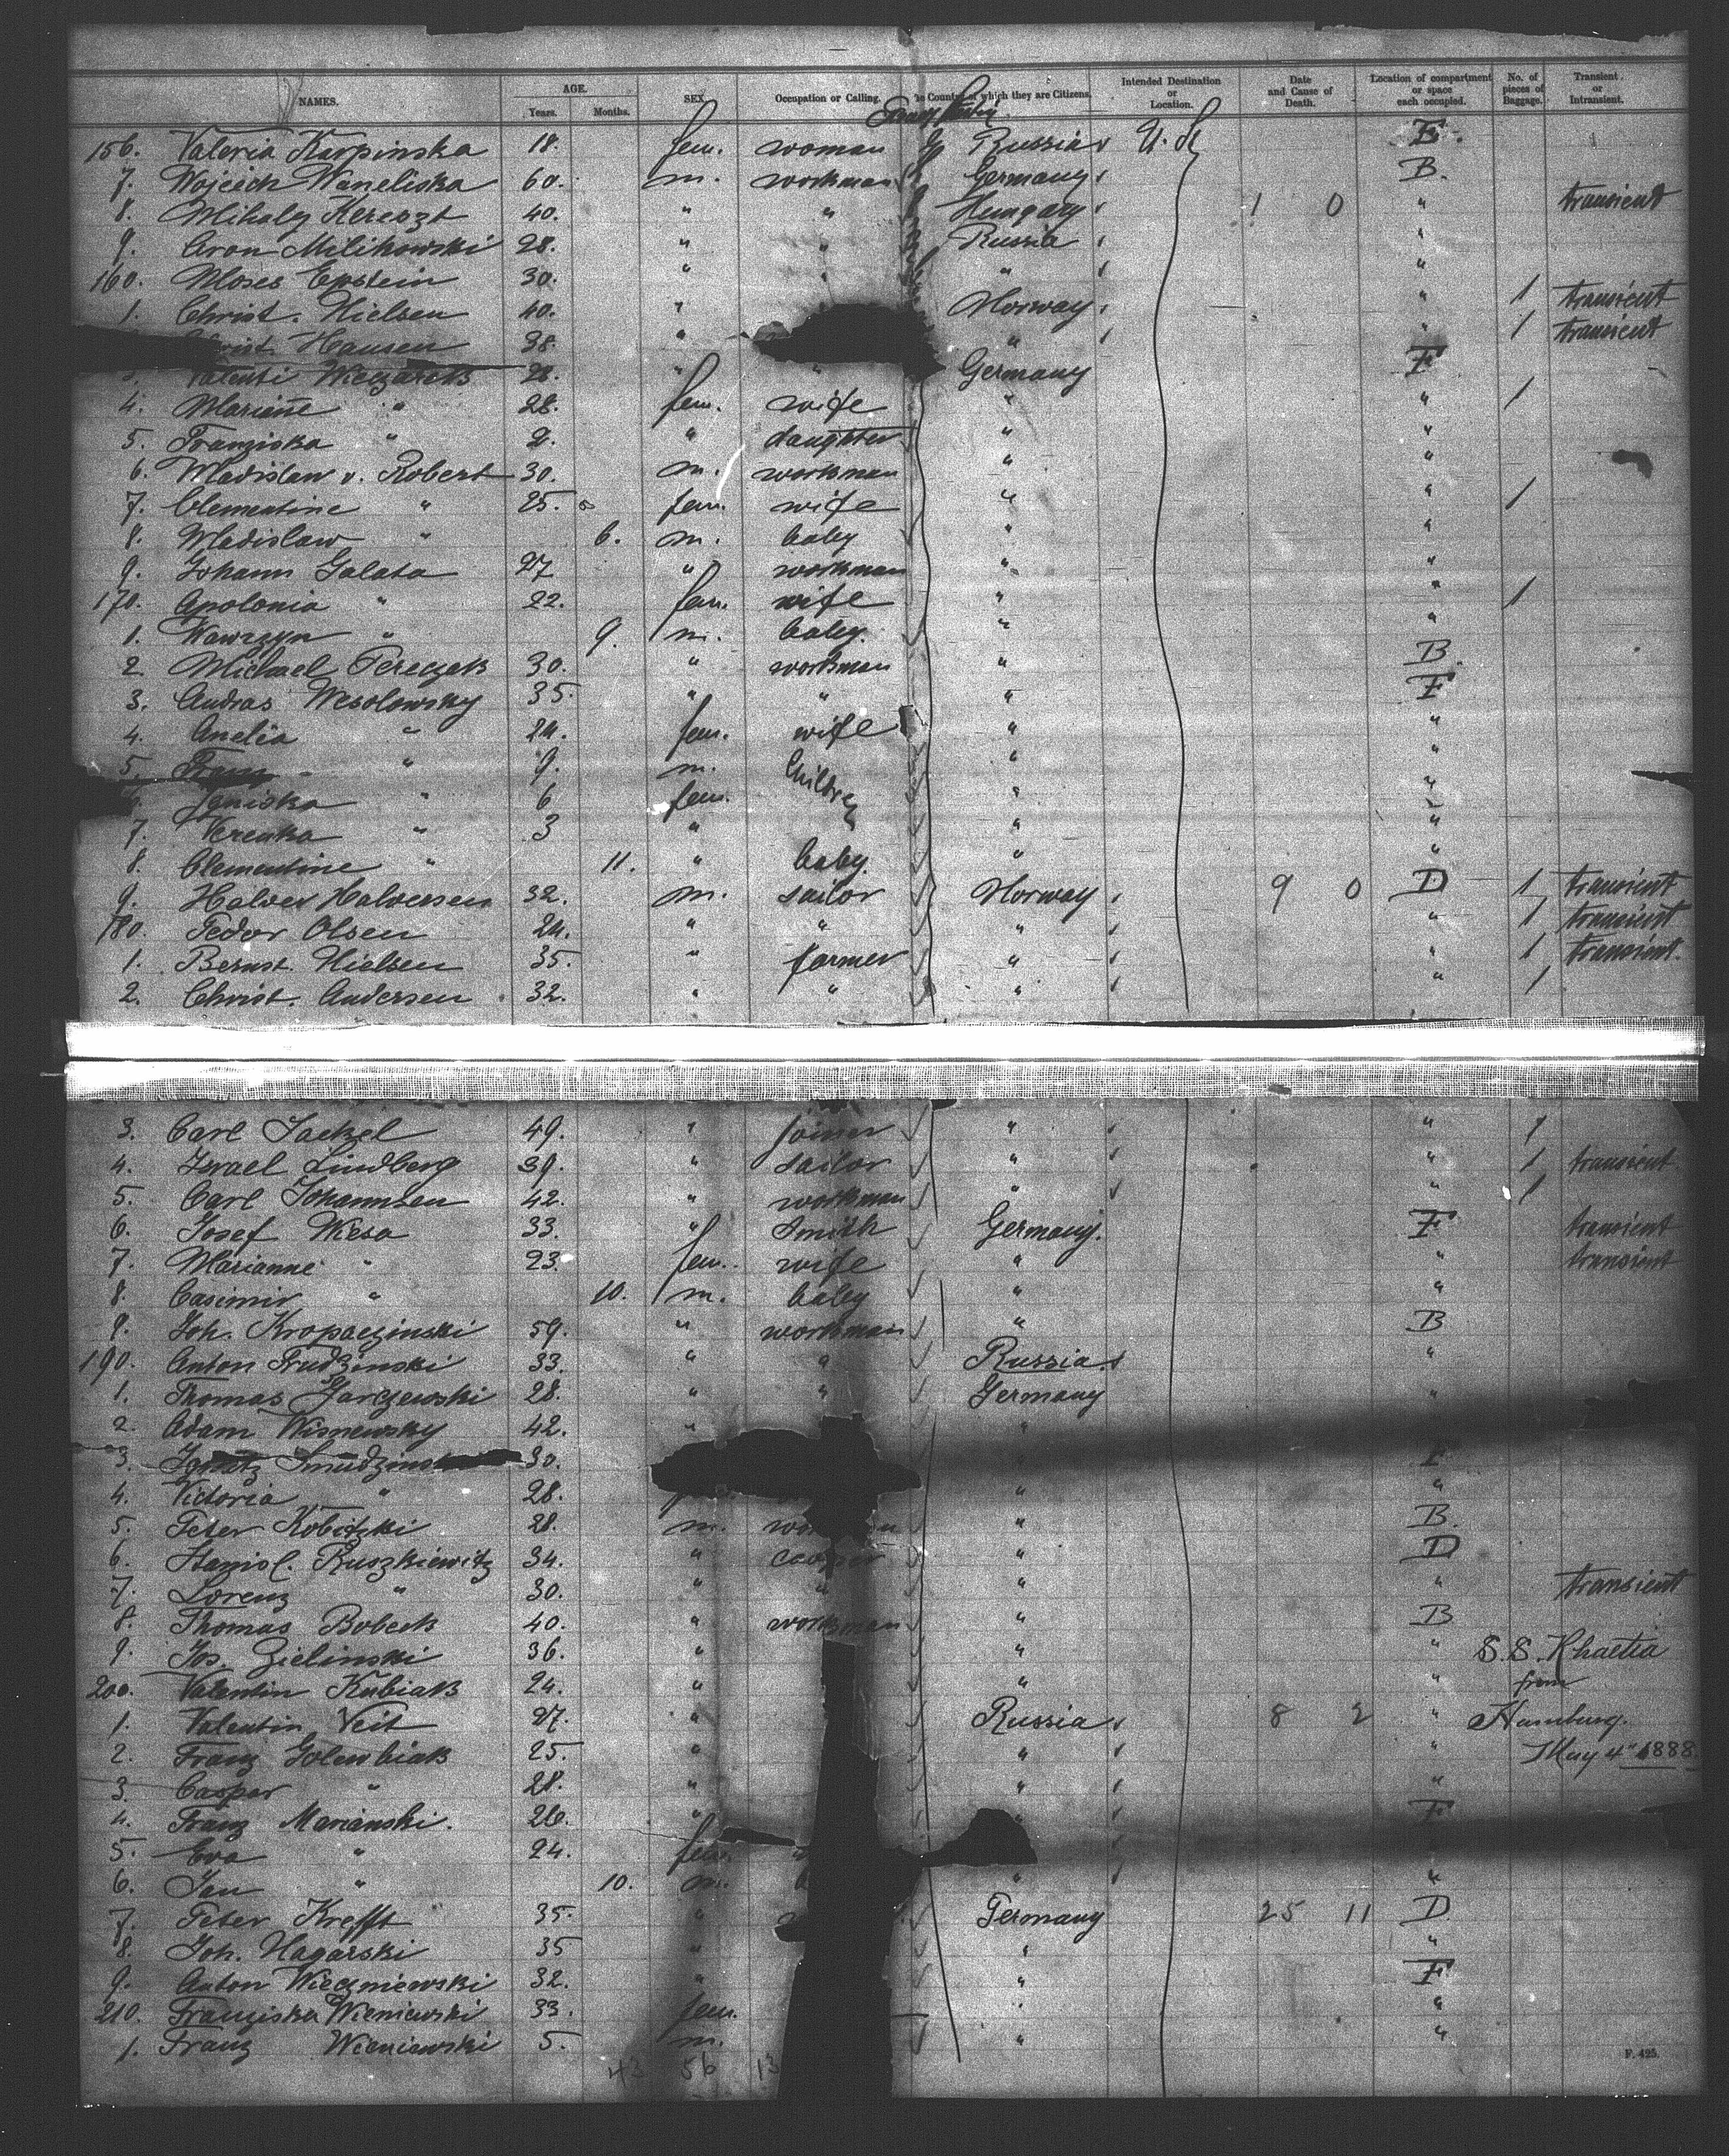 NAMES. AGE. Years. Months. SEX. Occupation or Calling. Country of which they are Citizens. Intended Destination or Location. Date and Cause of Death. Location of compartment or space each occupied. No. of pieces of Baggage. Transient or Intransient.
156. Valeria Karpinska 18. fem. woman Russia U. St. E.
7. Wojciech Waneliska 60. m. workman Germany B.
8. Mihaly Kereszt 40. " " Hungary 1 0 " transient
9. Aron Milikowski 28. " " Russia "
160. Moses Epstein 30. " " " "
1. Christ. Nielsen 40. " Norway " 1 transient
Christ. Hansen 38. " " " 1 transient
Valenti Wieczarek 28. " " Germany F
4. Marianne " 28. fem. wife " " 1
5. Franziska " 2. " daughter " "
6. Wladislaw v. Robert 30. m. workman " "
7. Clementine " 25. fem. wife " " 1
8. Wladislaw " 6. m. baby " "
9. Johann Galata 27 " workman " "
170. Apolonia " 22. fem. wife " " 1
1. Wawrzyn " 9. m. baby. " "
2. Michael Pereczak 30. " workman " B.
3. Andras Wesolowsky 35. " " " F
4. Anelia " 24. fem. wife " "
5. Franz " 9. m. Children " "
6. Igniska " 6 fem. " "
7. Verenka " 3 " " "
8. Clementine " 11. " baby. " "
9. Halver Halversen 32. m. sailor Norway 9 0 D 1 transient
180. Fedor Olsen 24. " " " " 1 transient
1. Bernst. Nielsen 35. " farmer " " 1 transient.
2. Christ. Andersen 32. " " " " 1
3. Carl Jackel 49. " joiner " " 1
4. Israel Lindberg 39. " sailor " " 1 transient
5. Carl Johannsen 42. " workman " " 1
6. Josef Wiesa 33. " Smith Germany. F transient
7. Marianne " 23. fem. wife " " transient
8. Casimir " 10. m. baby " "
9. Joh. Kropaczinski 59. " workman " B
190. Anton Prudzinski 33. " " Russia. "
1. Thomas Garczewski 28. " " Germany "
2. Adam Wisnewsky 42. " "
3. Ignatz Smudzinski 30. F
4. Victoria " 28. " "
5. Peter Kobitzki 28. m. " B.
6. Stanisl. Ruszkiewitz 34. " " D
7. Lorenz " 30. " " " " transient
8. Thomas Bobeck 40. " workman " B
9. Jos. Zielinski 36. " " " S.S. Rhaetia
200. Valentin Kubiak 24. " " " from
1. Valentin Veit 27. " Russia 8 2 " Hamburg.
2. Franz Golembiak 25. " " " May 4" 1888
3. Caspar " 28. " " "
4. Franz Marianski. 26. " " F
5. Eva " 24. fem.
6. Jan " 10. m. " "
7. Peter Krefft 35. " Germany 25 11 D.
8. Joh. Hagarski 35 " " "
9. Anton Wieczniewski 32. " " F
210. Franziska Wieniewski 33. fem. " "
1. Franz Wieniewski 5. m. " "
43 56 13
F. 425.